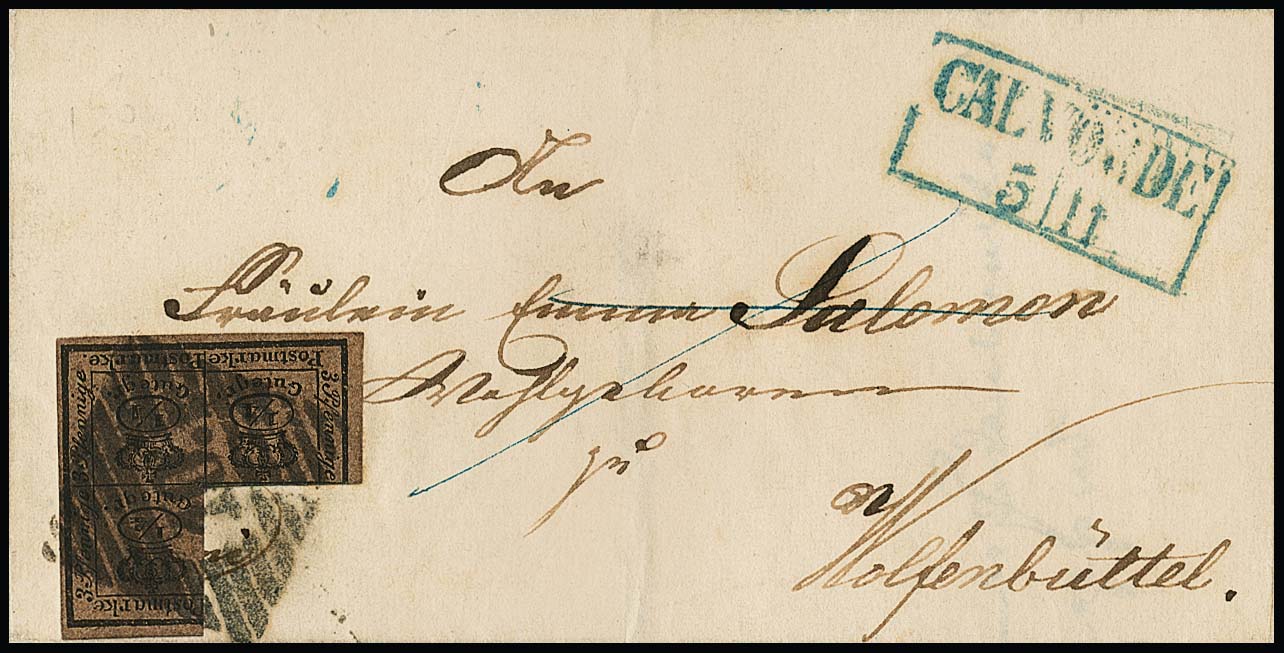 CALVÖRDE
5 11
An
Fräulein Emma Salomon
Wohlgeboren
zu
Wolfenbüttel.
Postmarke Postmarke.
3 Pfennige
3 Pfennige
Gutegr.
Gutegr.
1/4
1/4
Gutegr.
1/4
3 Pfennige
Postmarke